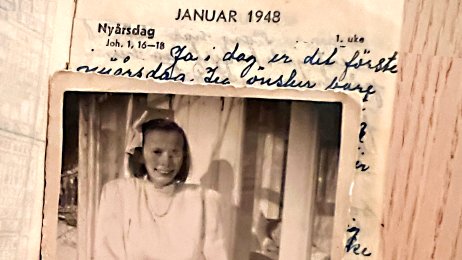 JANUAR 1948
Nyårsdag 1. uke
Joh. 1, 16—18
Ja i dag er det förste
nyårsdag. Jeg önsker bare